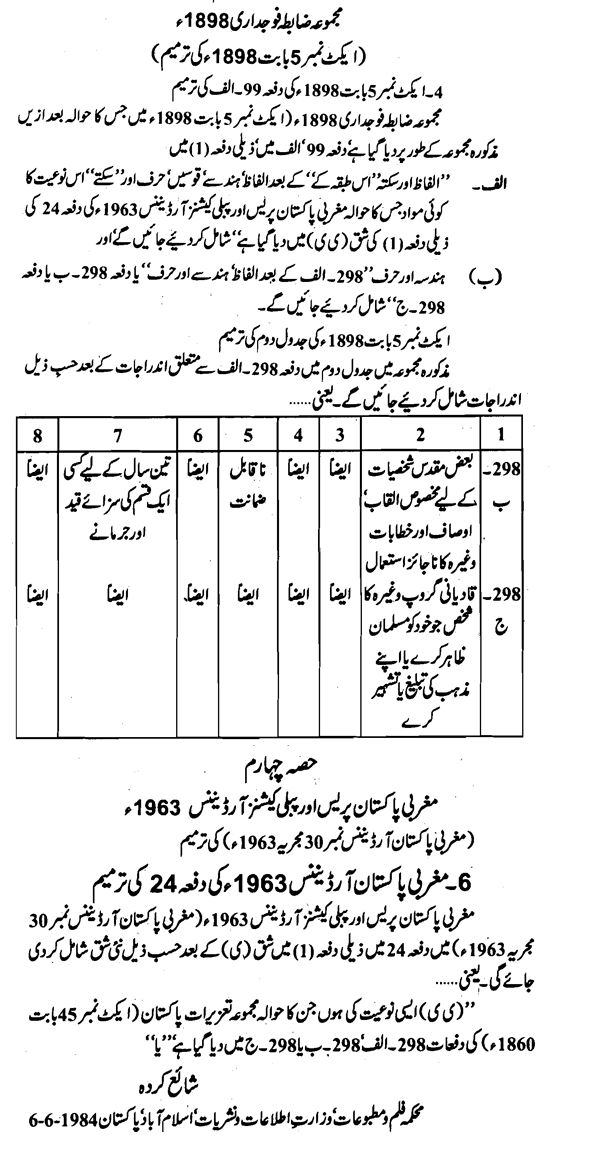 مجموعہ ضابطہ فوجداری 1898ء
(ایکٹ نمبر 5 بابت 1898ء کی ترمیم)
4۔ ایکٹ نمبر 5 بابت 1898ء کی دفعہ 99۔ الف کی ترمیم
مجموعہ ضابطہ فوجداری 1898ء (ایکٹ نمبر 5 بابت 1898ء میں جس کا حوالہ بعد ازیں
مذکورہ مجموعہ کے طور پر دیا گیا ہے' دفعہ 99' الف میں' ذیلی دفعہ (1) میں
الف۔ ''الفاظ اور سکتہ'' اس طبقہ کے'' کے بعد الفاظ' ہندسے' قوسیں' حرف اور ''سکتے'' اس نوعیت کا
کوئی مواد جس کا حوالہ مغربی پاکستان پریس اور پبلی کیشنز آرڈیننس 1963ء کی دفعہ 24 کی
ذیلی دفعہ (1) کی شق (ی ی) میں دیا گیا ہے'' شامل کردیئے جائیں گے' اور
(ب) ہندسہ اور حرف ''298۔ الف کے بعد الفاظ' ہندسے اور حرف'' یا دفعہ 298۔ ب یا دفعہ
298۔ ج'' شامل کردیئے جائیں گے۔
ایکٹ نمبر 5 بابت 1898ء کی جدول دوم کی ترمیم
مذکورہ مجموعہ میں جدول دوم میں دفعہ 298۔ الف سے متعلق اندراجات کے بعد حسب ذیل
اندراجات شامل کردیئے جائیں گے۔ یعنی......
1 2 3 4 5 6 7 8
298۔ بعض مقدس شخصیات ایضاً ایضاً ناقابل ایضاً تین سال کے لیے کسی ایضاً
ب کے لیے مخصوص القاب' ضمانت ایک قسم کی سزائے قید
اوصاف اور خطابات اور جرمانے
وغیرہ کا ناجائز استعمال
298۔ قادیانی گروپ وغیرہ کا ایضاً ایضاً ایضاً ایضاً ایضاً ایضاً
ج شخص جو خود کو مسلمان
ظاہر کرے یا اپنے
مذہب کی تبلیغ یا تشہیر
کرے
حصہ چہارم
مغربی پاکستان پریس اور پبلی کیشنز آرڈیننس 1963ء
(مغربی پاکستان آرڈیننس نمبر 30 مجریہ 1963ء) کی ترمیم
6۔ مغربی پاکستان آرڈیننس 1963ء کی دفعہ 24 کی ترمیم
مغربی پاکستان پریس اور پبلی کیشنز آرڈیننس 1963ء (مغربی پاکستان آرڈیننس نمبر 30
مجریہ 1963ء) میں دفعہ 24 میں ذیلی دفعہ (1) میں شق (ی) کے بعد حسب ذیل نئی شق شامل کردی
جائے گی۔ یعنی......
''(ی ی) ایسی نوعیت کی ہوں جن کا حوالہ مجموعہ تعزیرات پاکستان (ایکٹ نمبر 45 بابت
1860ء) کی دفعات 298۔ الف' 298۔ ب یا 298۔ ج میں دیا گیا ہے'' ''یا''
شائع کردہ
محکمہ فلم و مطبوعات' وزارت اطلاعات و نشریات' اسلام آباد' پاکستان 1984-6-6